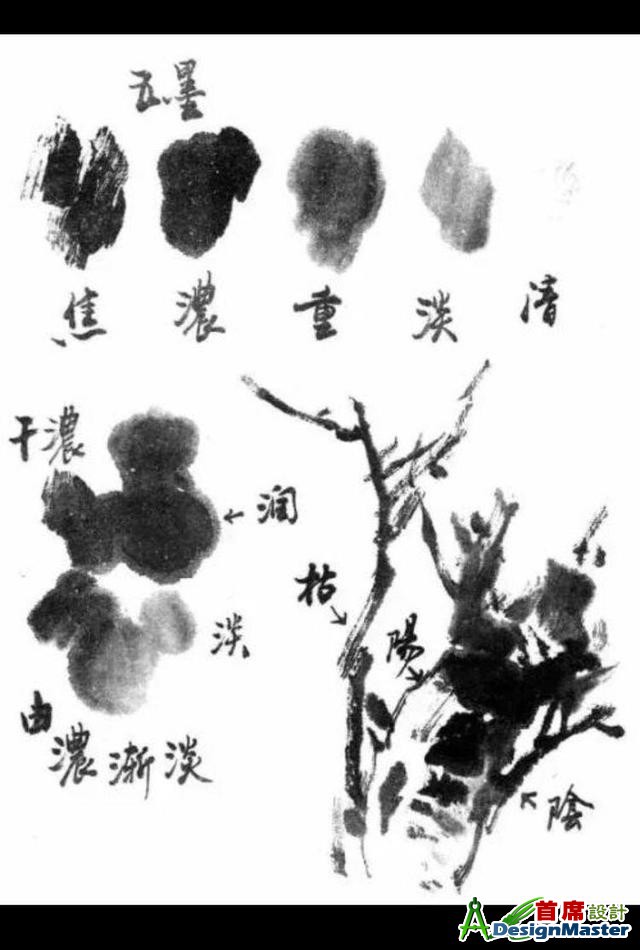 五墨
焦 濃 重 淡 清
干濃
润
枯
淡
陽
由濃渐淡
陰
首席設計
DesignMaster